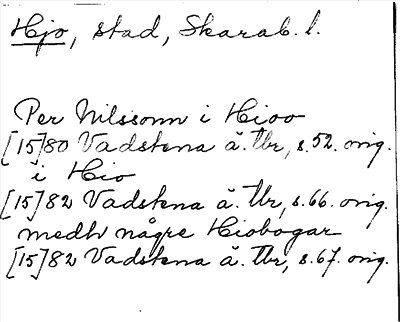 Hjo, stad, Skarab. l.
Per Nilssonn i Hioo
[15]80 Vadstena ä. Tbr, s.52. orig.
i Hio
[15]82 Vadstena ä. Tbr, s.66. orig.
medh någre Hiobogar
[15]82 Vadstena ä. Tbr, s.67. orig.